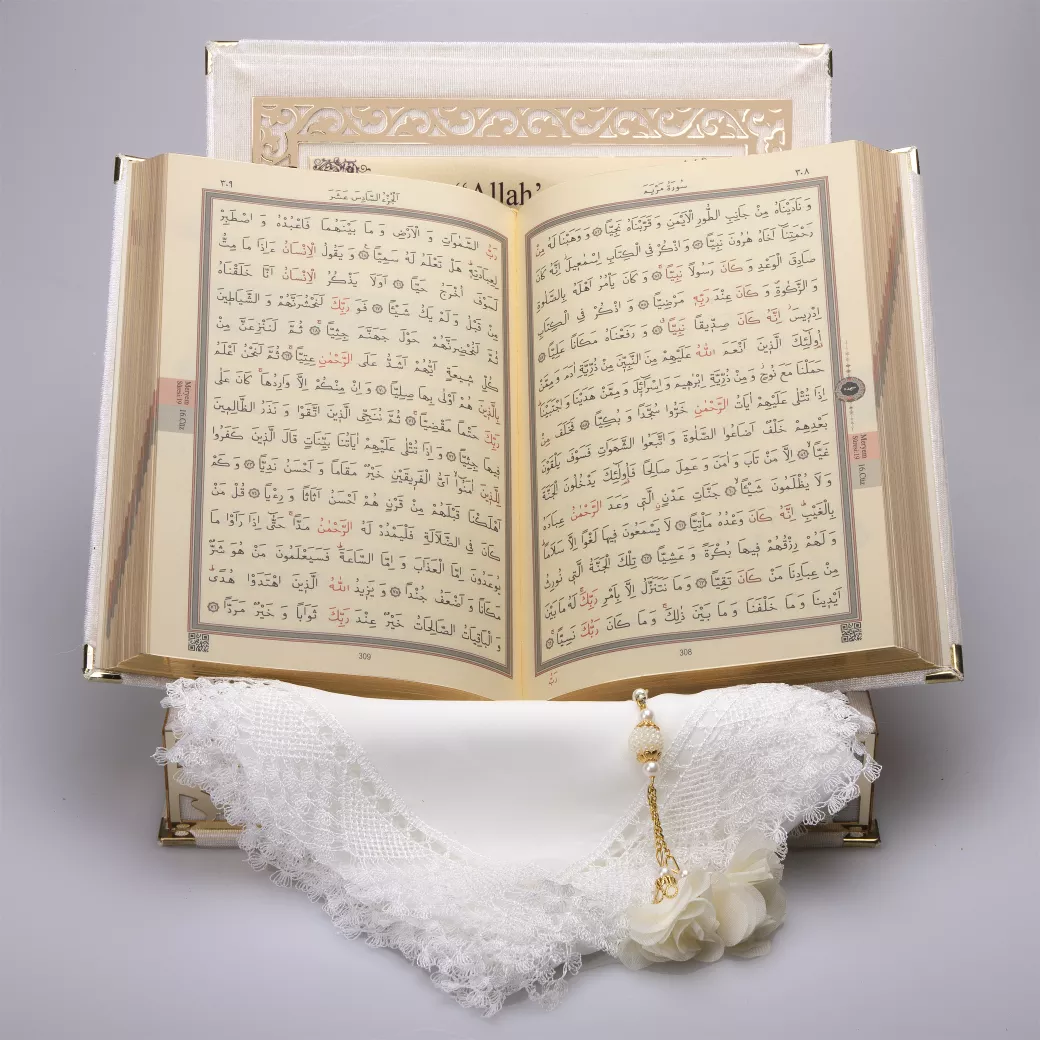 “Allah’
٣٠٨
سُورَةُ مَرْيَمَ
وَ نَادَيْنَاهُ مِنْ جَانِبِ الطُّورِ الْاَيْمَنِ وَ قَرَّبْنَاهُ نَجِيًّا ۝ وَ وَهَبْنَا لَهُ مِنْ
رَحْمَتِنَٓا اَخَاهُ هٰرُونَ نَبِيًّا ۝ وَ اذْكُرْ فِي الْكِتَابِ اِسْمٰعِيلَ اِنَّهُ كَانَ
صَادِقَ الْوَعْدِ وَ كَانَ رَسُولًا نَبِيًّا ۝ وَ كَانَ يَأْمُرُ اَهْلَهُ بِالصَّلٰوةِ
وَ الزَّكٰوةِ وَ كَانَ عِنْدَ رَبِّهِ مَرْضِيًّا ۝ وَ اذْكُرْ فِي الْكِتَابِ
اِدْرِيسَ اِنَّهُ كَانَ صِدِّيقًا نَبِيًّا ۝ وَ رَفَعْنَاهُ مَكَانًا عَلِيًّا ۝
اُولٰٓئِكَ الَّذِينَ اَنْعَمَ اللّٰهُ عَلَيْهِمْ مِنَ النَّبِيِّنَ مِنْ ذُرِّيَّةِ اٰدَمَ وَ مِمَّنْ
حَمَلْنَا مَعَ نُوحٍ وَ مِنْ ذُرِّيَّةِ اِبْرٰهِيمَ وَ اِسْرَٓائِلَ وَ مِمَّنْ هَدَيْنَا وَ اجْتَبَيْنَا
اِذَا تُتْلٰى عَلَيْهِمْ اٰيَاتُ الرَّحْمٰنِ خَرُّوا سُجَّدًا وَ بُكِيًّا ۝ فَخَلَفَ مِنْ
بَعْدِهِمْ خَلْفٌ اَضَاعُوا الصَّلٰوةَ وَ اتَّبَعُوا الشَّهَوَاتِ فَسَوْفَ يَلْقَوْنَ
غَيًّا ۝ اِلَّا مَنْ تَابَ وَ اٰمَنَ وَ عَمِلَ صَالِحًا فَاُولٰٓئِكَ يَدْخُلُونَ الْجَنَّةَ
وَ لَا يُظْلَمُونَ شَيْئًا ۝ جَنَّاتِ عَدْنٍ الَّتِي وَعَدَ الرَّحْمٰنُ عِبَادَهُ
بِالْغَيْبِ اِنَّهُ كَانَ وَعْدُهُ مَأْتِيًّا ۝ لَا يَسْمَعُونَ فِيهَا لَغْوًا اِلَّا سَلَامًا
وَ لَهُمْ رِزْقُهُمْ فِيهَا بُكْرَةً وَ عَشِيًّا ۝ تِلْكَ الْجَنَّةُ الَّتِي نُورِثُ
مِنْ عِبَادِنَا مَنْ كَانَ تَقِيًّا ۝ وَ مَا نَتَنَزَّلُ اِلَّا بِاَمْرِ رَبِّكَ لَهُ مَا بَيْنَ
اَيْدِينَا وَ مَا خَلْفَنَا وَ مَا بَيْنَ ذٰلِكَ وَ مَا كَانَ رَبُّكَ نَسِيًّا ۝
رَبُّ
308
Meryem
Sûresi 19
16.Cüz
٣٠٩
اَلْجُزْءُ السَّادِسَ عَشَرَ
رَبُّ السَّمٰوَاتِ وَ الْاَرْضِ وَ مَا بَيْنَهُمَا فَاعْبُدْهُ وَ اصْطَبِرْ
لِعِبَادَتِهِ هَلْ تَعْلَمُ لَهُ سَمِيًّا ۝ وَ يَقُولُ الْاِنْسَانُ ءَاِذَا مَا مِتُّ
لَسَوْفَ اُخْرَجُ حَيًّا ۝ اَوَلَا يَذْكُرُ الْاِنْسَانُ اَنَّا خَلَقْنَاهُ
مِنْ قَبْلُ وَ لَمْ يَكُ شَيْئًا ۝ فَوَ رَبِّكَ لَنَحْشُرَنَّهُمْ وَ الشَّيَاطِينَ
ثُمَّ لَنُحْضِرَنَّهُمْ حَوْلَ جَهَنَّمَ جِثِيًّا ۝ ثُمَّ لَنَنْزِعَنَّ مِنْ
كُلِّ شِيعَةٍ اَيُّهُمْ اَشَدُّ عَلَى الرَّحْمٰنِ عِتِيًّا ۝ ثُمَّ لَنَحْنُ اَعْلَمُ
بِالَّذِينَ هُمْ اَوْلٰى بِهَا صِلِيًّا ۝ وَ اِنْ مِنْكُمْ اِلَّا وَارِدُهَا كَانَ عَلٰى
رَبِّكَ حَتْمًا مَقْضِيًّا ۝ ثُمَّ نُنَجِّي الَّذِينَ اتَّقَوْا وَ نَذَرُ الظَّالِمِينَ
فِيهَا جِثِيًّا ۝ وَ اِذَا تُتْلٰى عَلَيْهِمْ اٰيَاتُنَا بَيِّنَاتٍ قَالَ الَّذِينَ كَفَرُوا
لِلَّذِينَ اٰمَنُٓوا اَيُّ الْفَرِيقَيْنِ خَيْرٌ مَقَامًا وَ اَحْسَنُ نَدِيًّا ۝ وَ كَمْ
اَهْلَكْنَا قَبْلَهُمْ مِنْ قَرْنٍ هُمْ اَحْسَنُ اَثَاثًا وَ رِءْيًا ۝ قُلْ مَنْ
كَانَ فِي الضَّلَالَةِ فَلْيَمْدُدْ لَهُ الرَّحْمٰنُ مَدًّا حَتّٰٓى اِذَا رَاَوْا مَا
يُوعَدُونَ اِمَّا الْعَذَابَ وَ اِمَّا السَّاعَةَ فَسَيَعْلَمُونَ مَنْ هُوَ شَرٌّ
مَكَانًا وَ اَضْعَفُ جُنْدًا ۝ وَ يَزِيدُ اللّٰهُ الَّذِينَ اهْتَدَوْا هُدًى
وَ الْبَاقِيَاتُ الصَّالِحَاتُ خَيْرٌ عِنْدَ رَبِّكَ ثَوَابًا وَ خَيْرٌ مَرَدًّا ۝
309
Meryem
Sûresi 19
16.Cüz